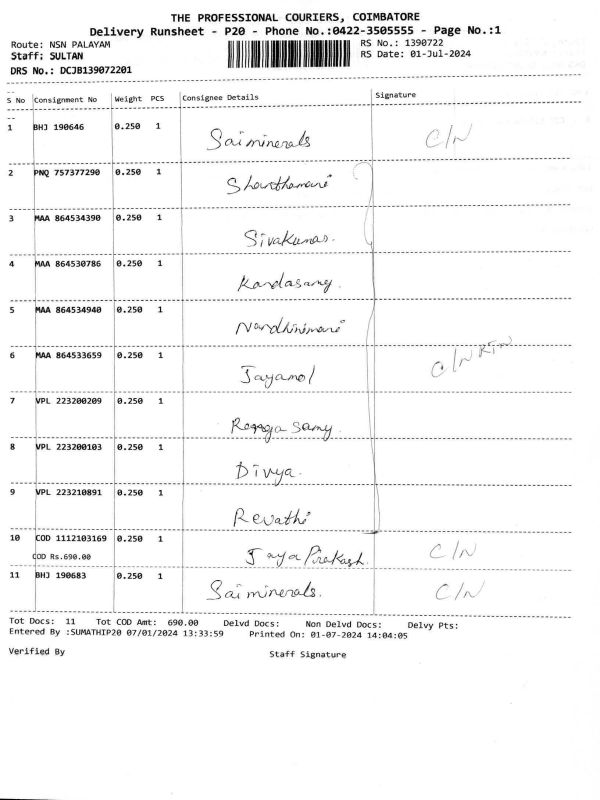 THE PROFESSIONAL COURIERS, COIMBATORE
Delivery Runsheet - P20 - Phone No.:0422-3505555 - Page No.:1
Route: NSN PALAYAM RS No.: 1390722
Staff: SULTAN RS Date: 01-Jul-2024
DRS No.: DCJB139072201
S No Consignment No Weight PCS Consignee Details Signature
1 BHJ 190646 0.250 1 Saiminerals C/N
2 PNQ 757377290 0.250 1 Shanthamani
3 MAA 864534390 0.250 1 Sivakumar.
4 MAA 864530786 0.250 1 Kandasamy.
5 MAA 864534940 0.250 1 Nandhinimani
6 MAA 864533659 0.250 1 Jayamol C/N RTN
7 VPL 223200209 0.250 1 Rengasamy.
8 VPL 223200103 0.250 1 Divya.
9 VPL 223210891 0.250 1 Revathi
10 COD 1112103169 0.250 1 Jaya Pirakash. C/N
COD Rs.690.00
11 BHJ 190683 0.250 1 Saiminerals. C/N
Tot Docs: 11 Tot COD Amt: 690.00 Delvd Docs: Non Delvd Docs: Delvy Pts:
Entered By :SUMATHIP20 07/01/2024 13:33:59 Printed On: 01-07-2024 14:04:05
Verified By Staff Signature